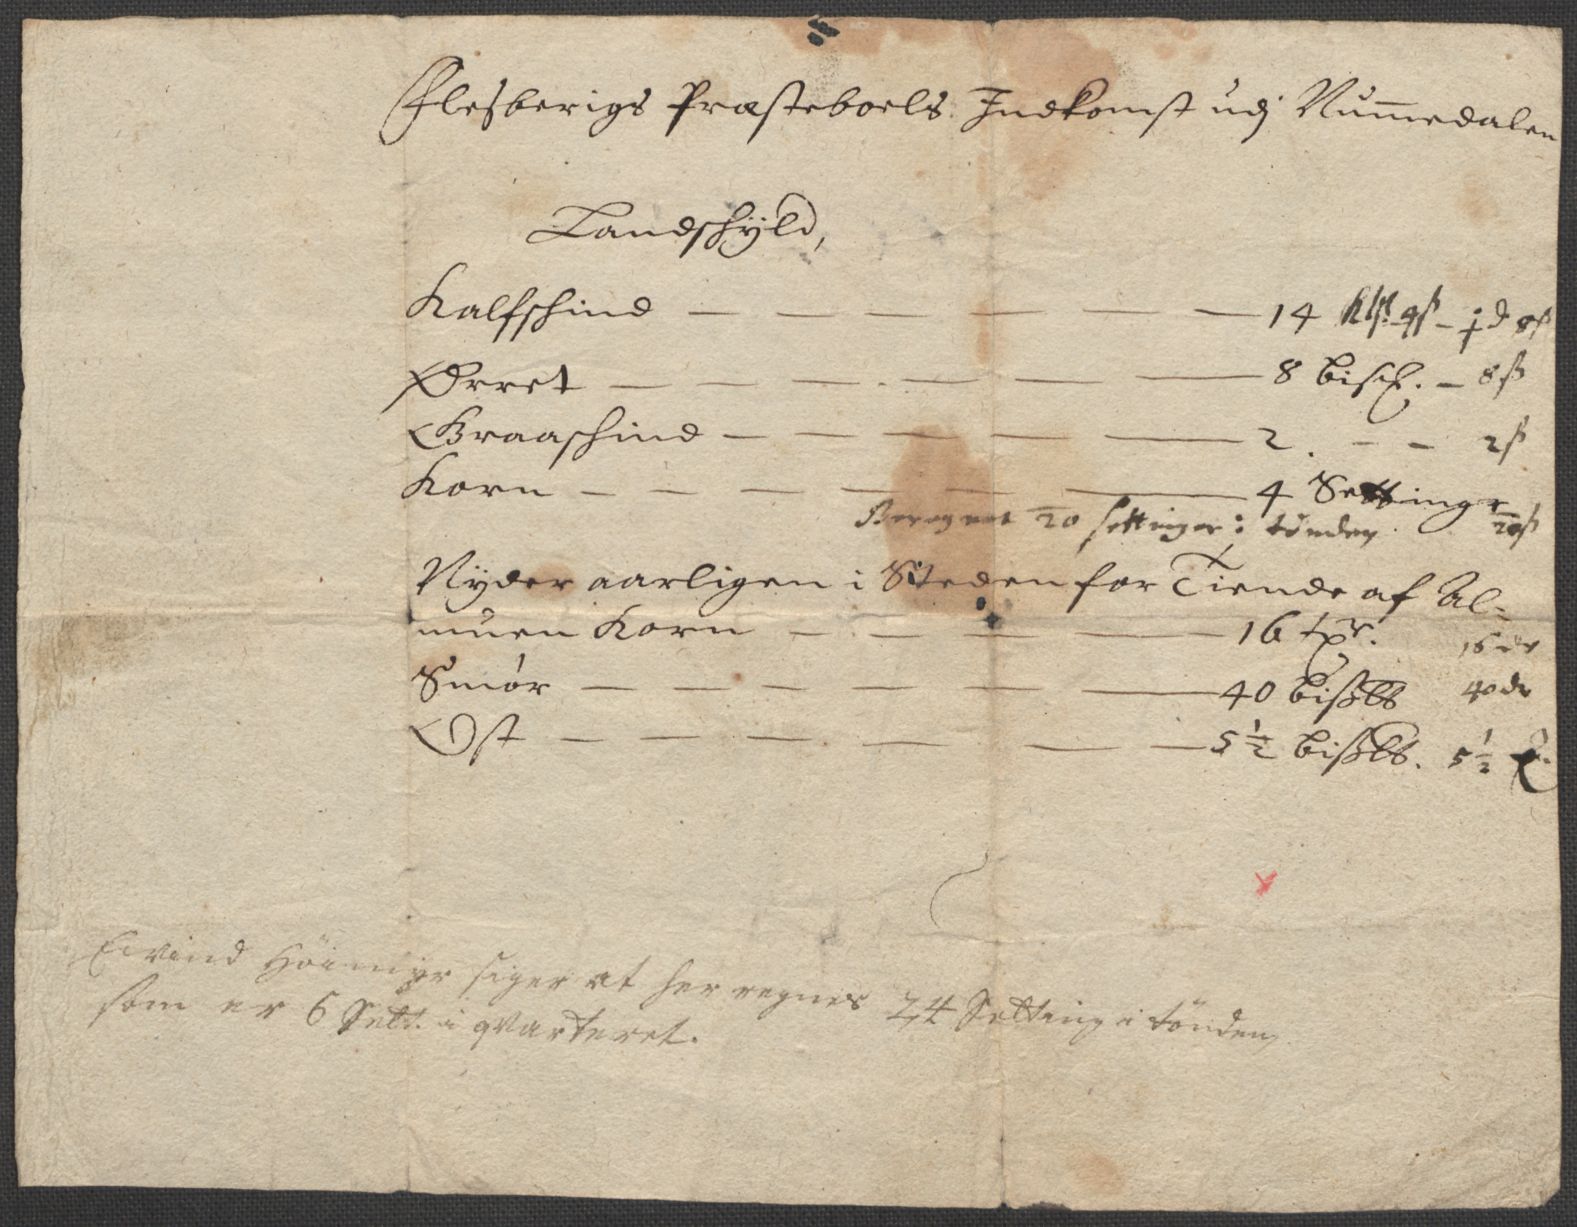 Flesberigs Præsteboels Indkomst udj Nummedalen
Landschÿld,
Kalfschind — — — — — — — 14
Ørret — — — — — — — 8 bisℓ. — 8 ß
Graaschind — — — — — 2 . — — 2 ß
Korn — — — — — — 4 Setting
Beregnet 20 settinger i tünden
Nÿder aarligen i Steden for Tiende af Al-
muen Korn — — — — — 16 tχr. 16 dr
Smør — — — — — — 40 bißlb 40 dr
Ost — — — — — — 5 1/2 bißlb. 5 1/2
Eivind Höimÿr siger at her regnes 24 Setting i tönden
som er 6 Sett. i qvarteret.